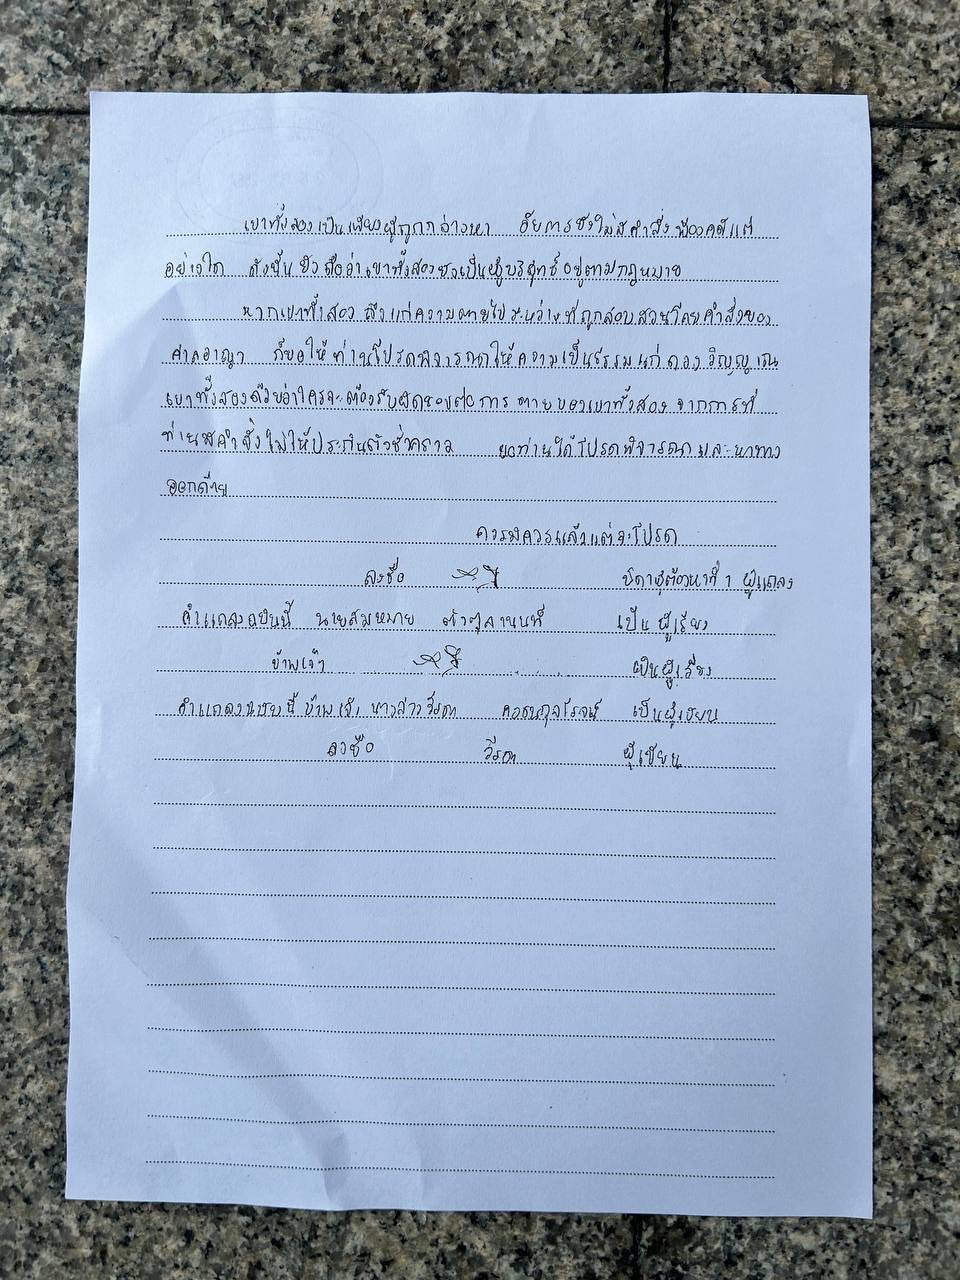 เขาทั้งสองเป็นเพียงผู้ถูกกล่าวหา อัยการยังไม่มีคำสั่งฟ้องคดีแต่
อย่างใด ดังนั้น จึงถือว่าเขาทั้งสองยังเป็นผู้บริสุทธิ์อยู่ตามกฎหมาย
หากเขาทั้งสอง ถึงแก่ความตายไประหว่างที่ถูกสอบสวนโดยคำสั่งของ
ศาลอาญา ก็ขอให้ท่านโปรดพิจารณาให้ความเป็นธรรมแก่ดวงวิญญาณ
เขาทั้งสองด้วยว่าใครจะต้องรับผิดชอบต่อการตายของเขาทั้งสอง จากการที่
ท่านมีคำสั่งไม่ให้ประกันตัวชั่วคราว ขอท่านได้โปรดพิจารณาและหาทาง
ออกด้วย
ควรมิควรแล้วแต่จะโปรด
ลงชื่อ บิดาผู้ต้องหาที่ 1 ผู้แถลง
คำแถลงฉบับนี้ นายสมหมาย ตัวตุลานนท์ เป็นผู้เรียง
ข้าพเจ้า เป็นผู้เรียง
คำแถลงฉบับนี้ ข้าพเจ้า นางสาววีรดา คงธนกุลโรจน์ เป็นผู้เขียน
ลงชื่อ วีรดา ผู้เขียน